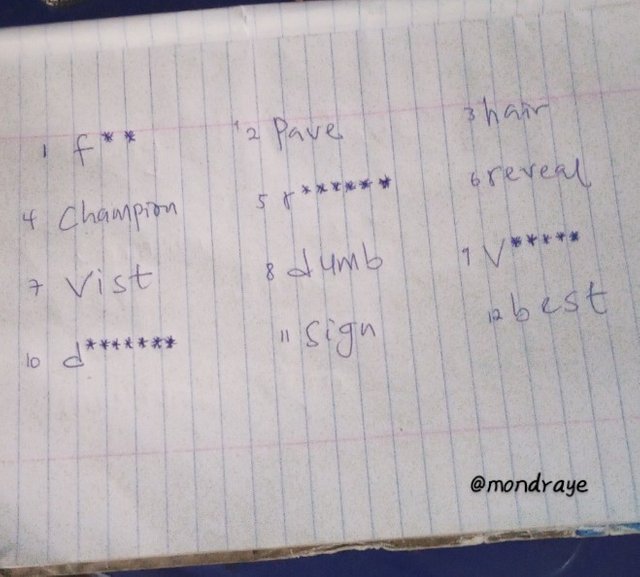 1 f** 2 Pave 3 hair
4 Champion 5 r****** 6 reveal
7 Vist 8 dumb 9 V*****
10 d******* 11 Sign 12 best
@mondraye